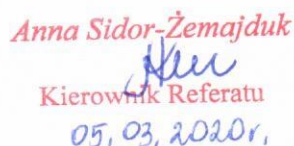 Anna Sidor-Żemajduk
Kierownik Referatu
05.03.2020r.